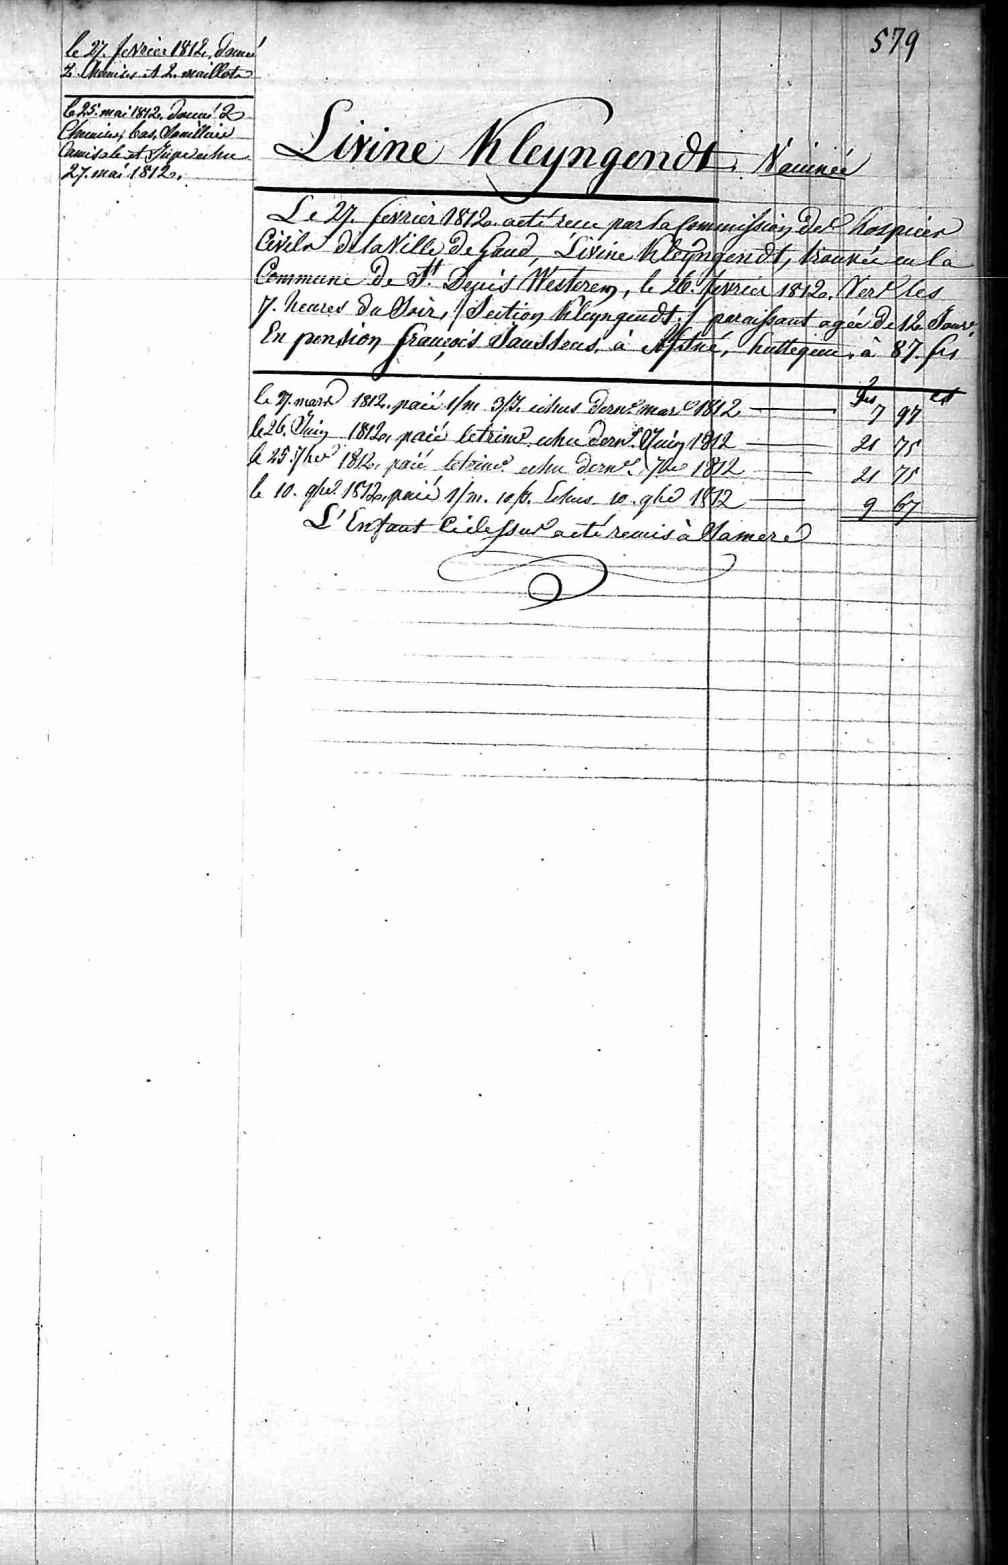 579
le 27. fevrier 1812. donné
2. Chemises et 2. maillots
le 25. mai 1812. donné 2
Chemises, bas, Souillere
Camisole et Jupe echu
27. mai 1812.
Livine Kleyngendt. Vaccinée
Le 27. fevrier 1812. a eté recu par la Commission des hospices
Civils de la Ville de Gand, Livine Kleyngendt, trouvée en la
Commune de St. Denis Westrem, le 26. fevrier 1812. Vers les
7. heures du Soir, / Section Kleyngendt. / paraissant agée de 12. Jours.
En pension françois Janssens, à Afsné, à 87. frs
frs ct
le 27. mars 1812. paié 1/m 3/J. echus dern. mars 1812 7 97
le 26. Juin 1812. paié le trime echu dern. Juin 1812 21 75
le 25. 7bre 1812. paié le trime echu dern. 7bre 1812 21 75
le 10. 9bre 1812. paié 1/m. 10/J. Echus 10. 9bre 1812 9 67
L'Enfant Cidessus a eté remis à Sa mere